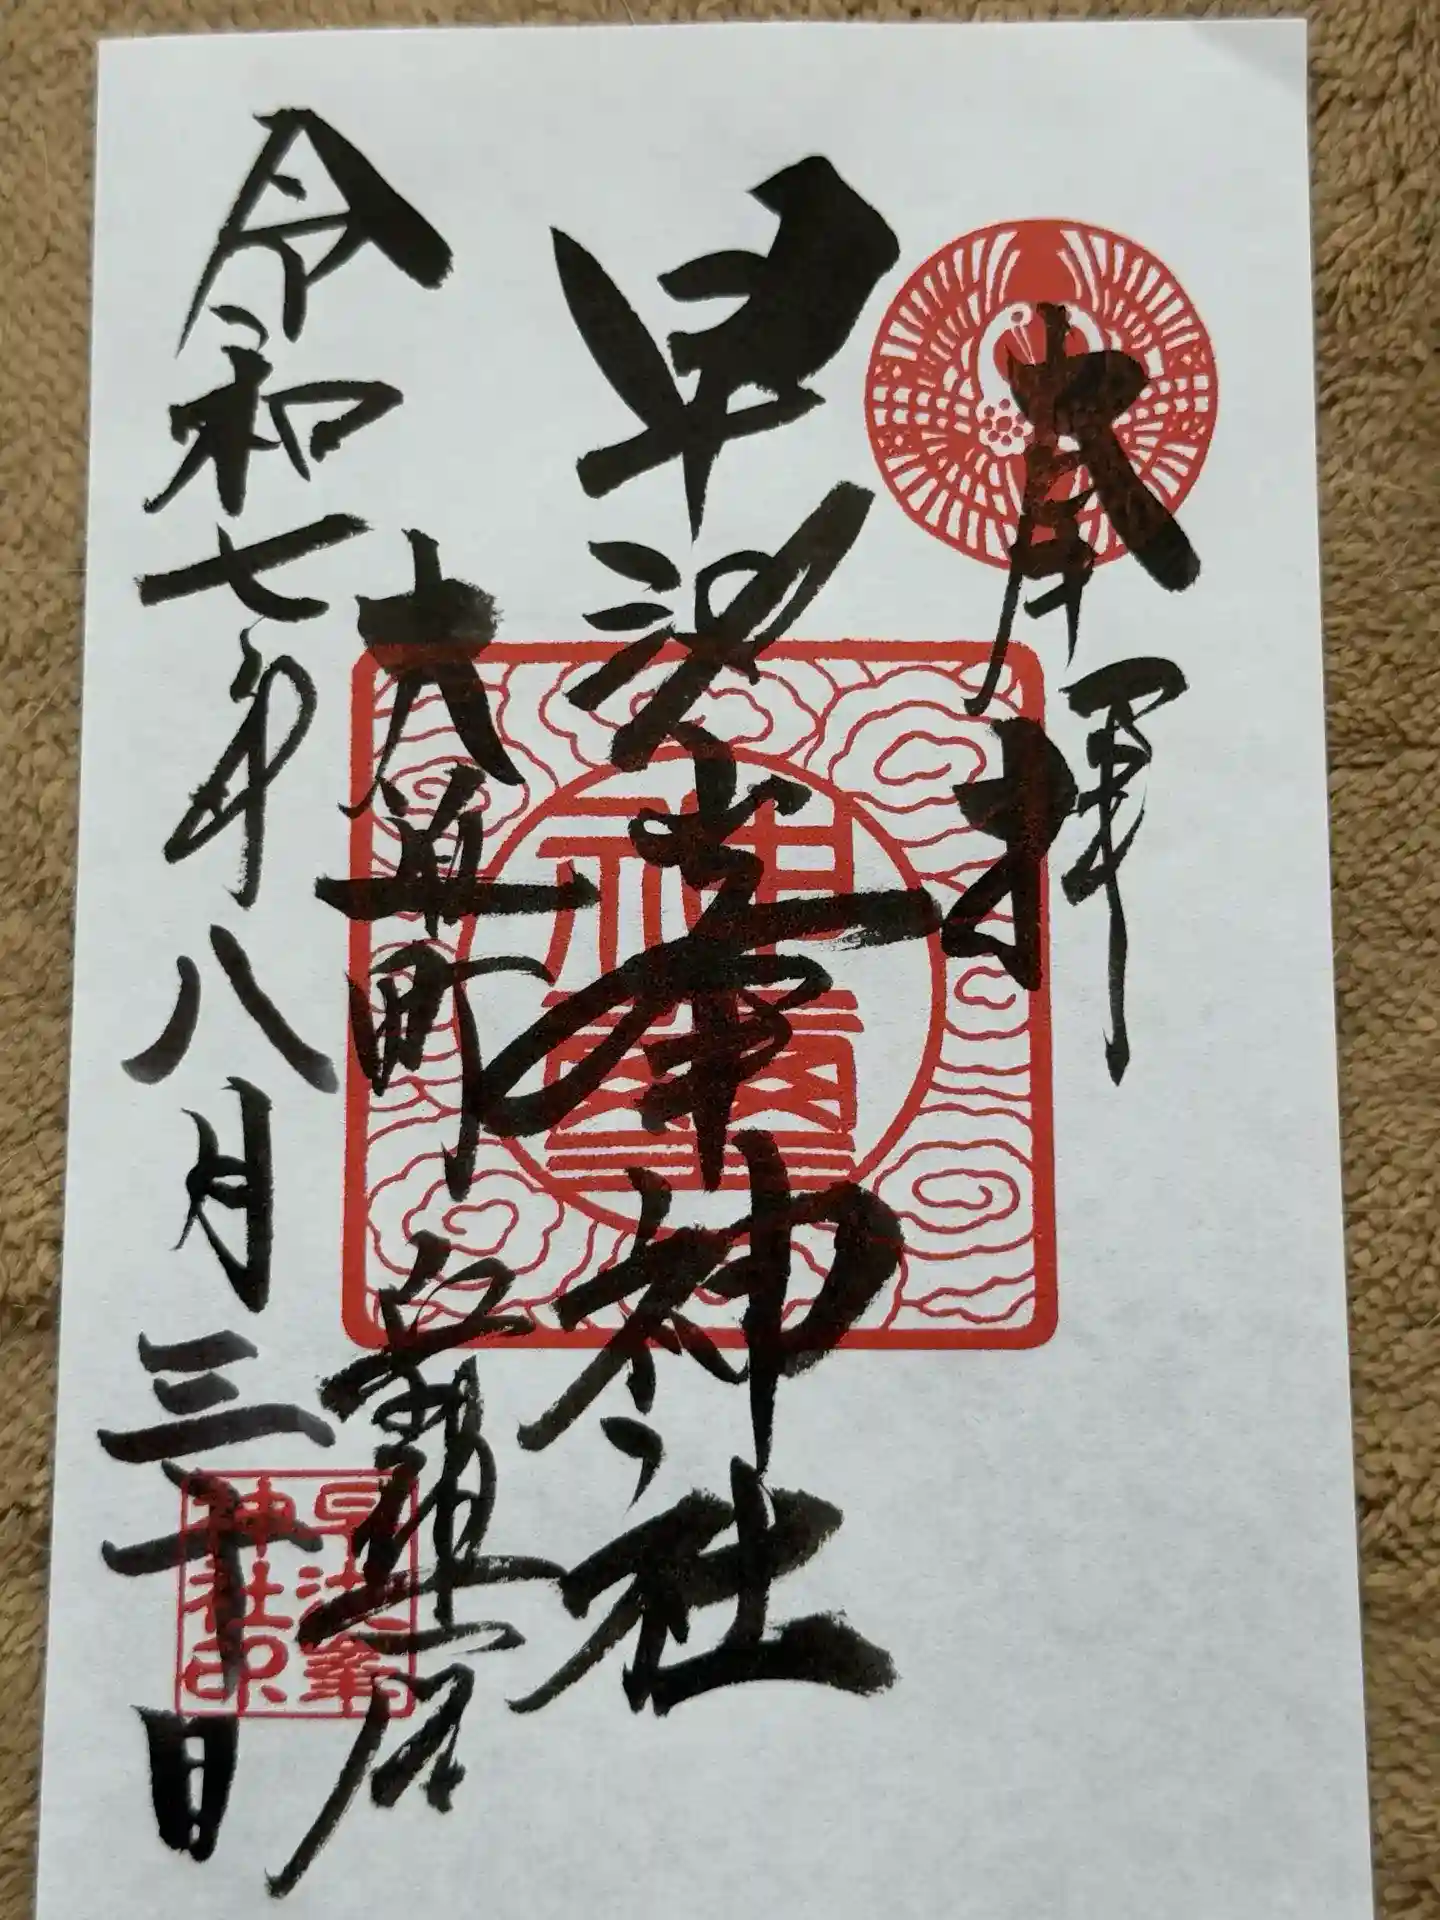 奉拝
早池峯神社
大迫町岳鎮座
令和七年八月三十日
早池峯
神社印